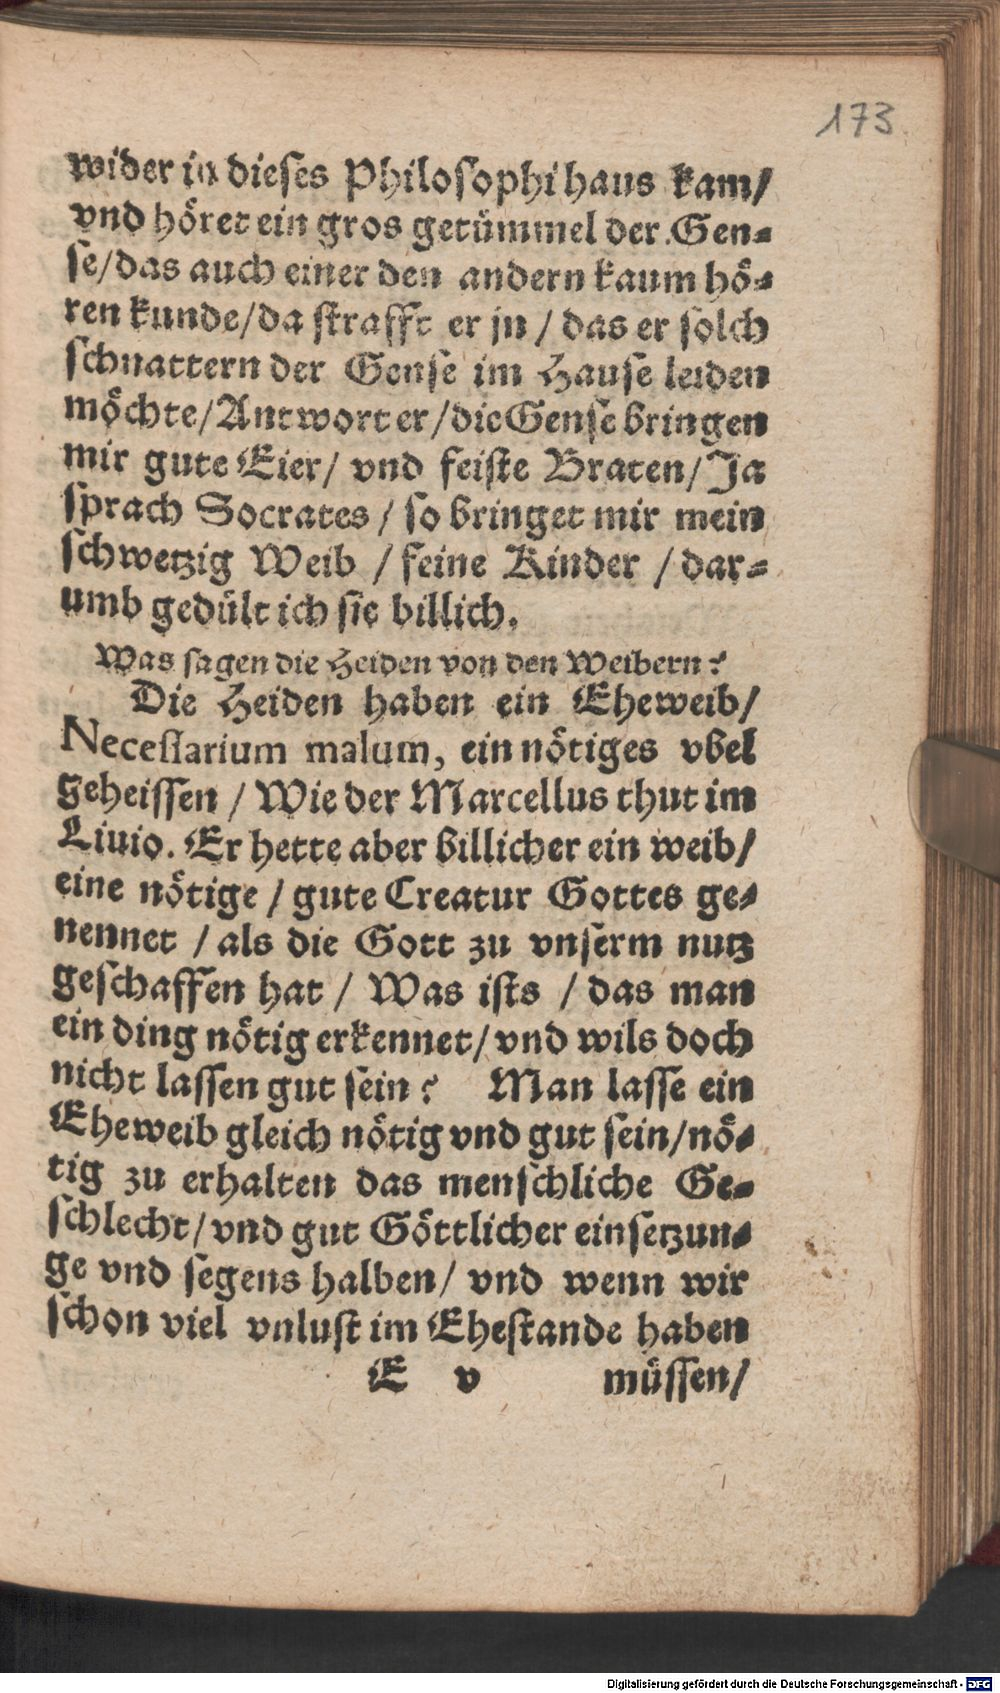 173
wider in dieses Philosophi haus kam/
vnd höret ein gros getümmel der Gen-
se/das auch einer den andern kaum hö-
ren kunde/da strafft er jn / das er solch
schnattern der Gense im Hause leiden
möchte/Antwort er/die Gense bringen
mir gute Eier/ vnd feiste Braten/Ja
sprach Socrates / so bringet mir mein
schwetzig Weib / feine Kinder / dar-
umb gedült ich sie billich.
Was sagen die Heiden von den Weibern?
Die Heiden haben ein Eheweib/
Necessarium malum, ein nötiges vbel
geheissen / Wie der Marcellus thut im
Liuio. Er hette aber billicher ein weib/
eine nötige / gute Creatur Gottes ge-
nennet / als die Gott zu vnserm nutz
geschaffen hat / Was ists / das man
ein ding nötig erkennet/ vnd wils doch
nicht lassen gut sein? Man lasse ein
Eheweib gleich nötig vnd gut sein/nö-
tig zu erhalten das menschliche Ge-
schlecht/vnd gut Göttlicher einsetzun-
ge vnd segens halben/ vnd wenn wir
schon viel vnlust im Ehestande haben
E v müssen/
Digitalisierung gefördert durch die Deutsche Forschungsgemeinschaft - DFG